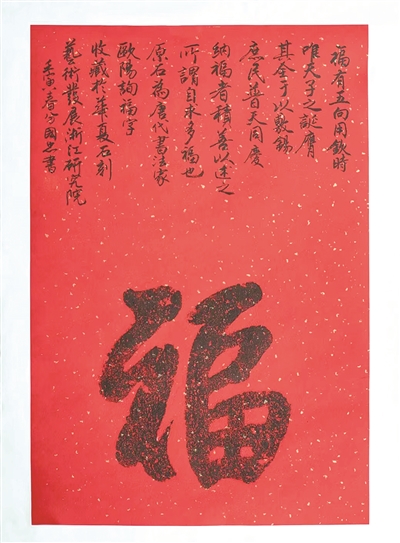 福有五向用敛時
唯天子之誕膺
其全于以敷錫
庶民普天同慶
納福者積善以迓之
所謂自求多福也
原石為唐代書法家
歐陽詢福字
收藏於華夏石刻
藝術發展浙江研究院
壬寅春分國忠書
福